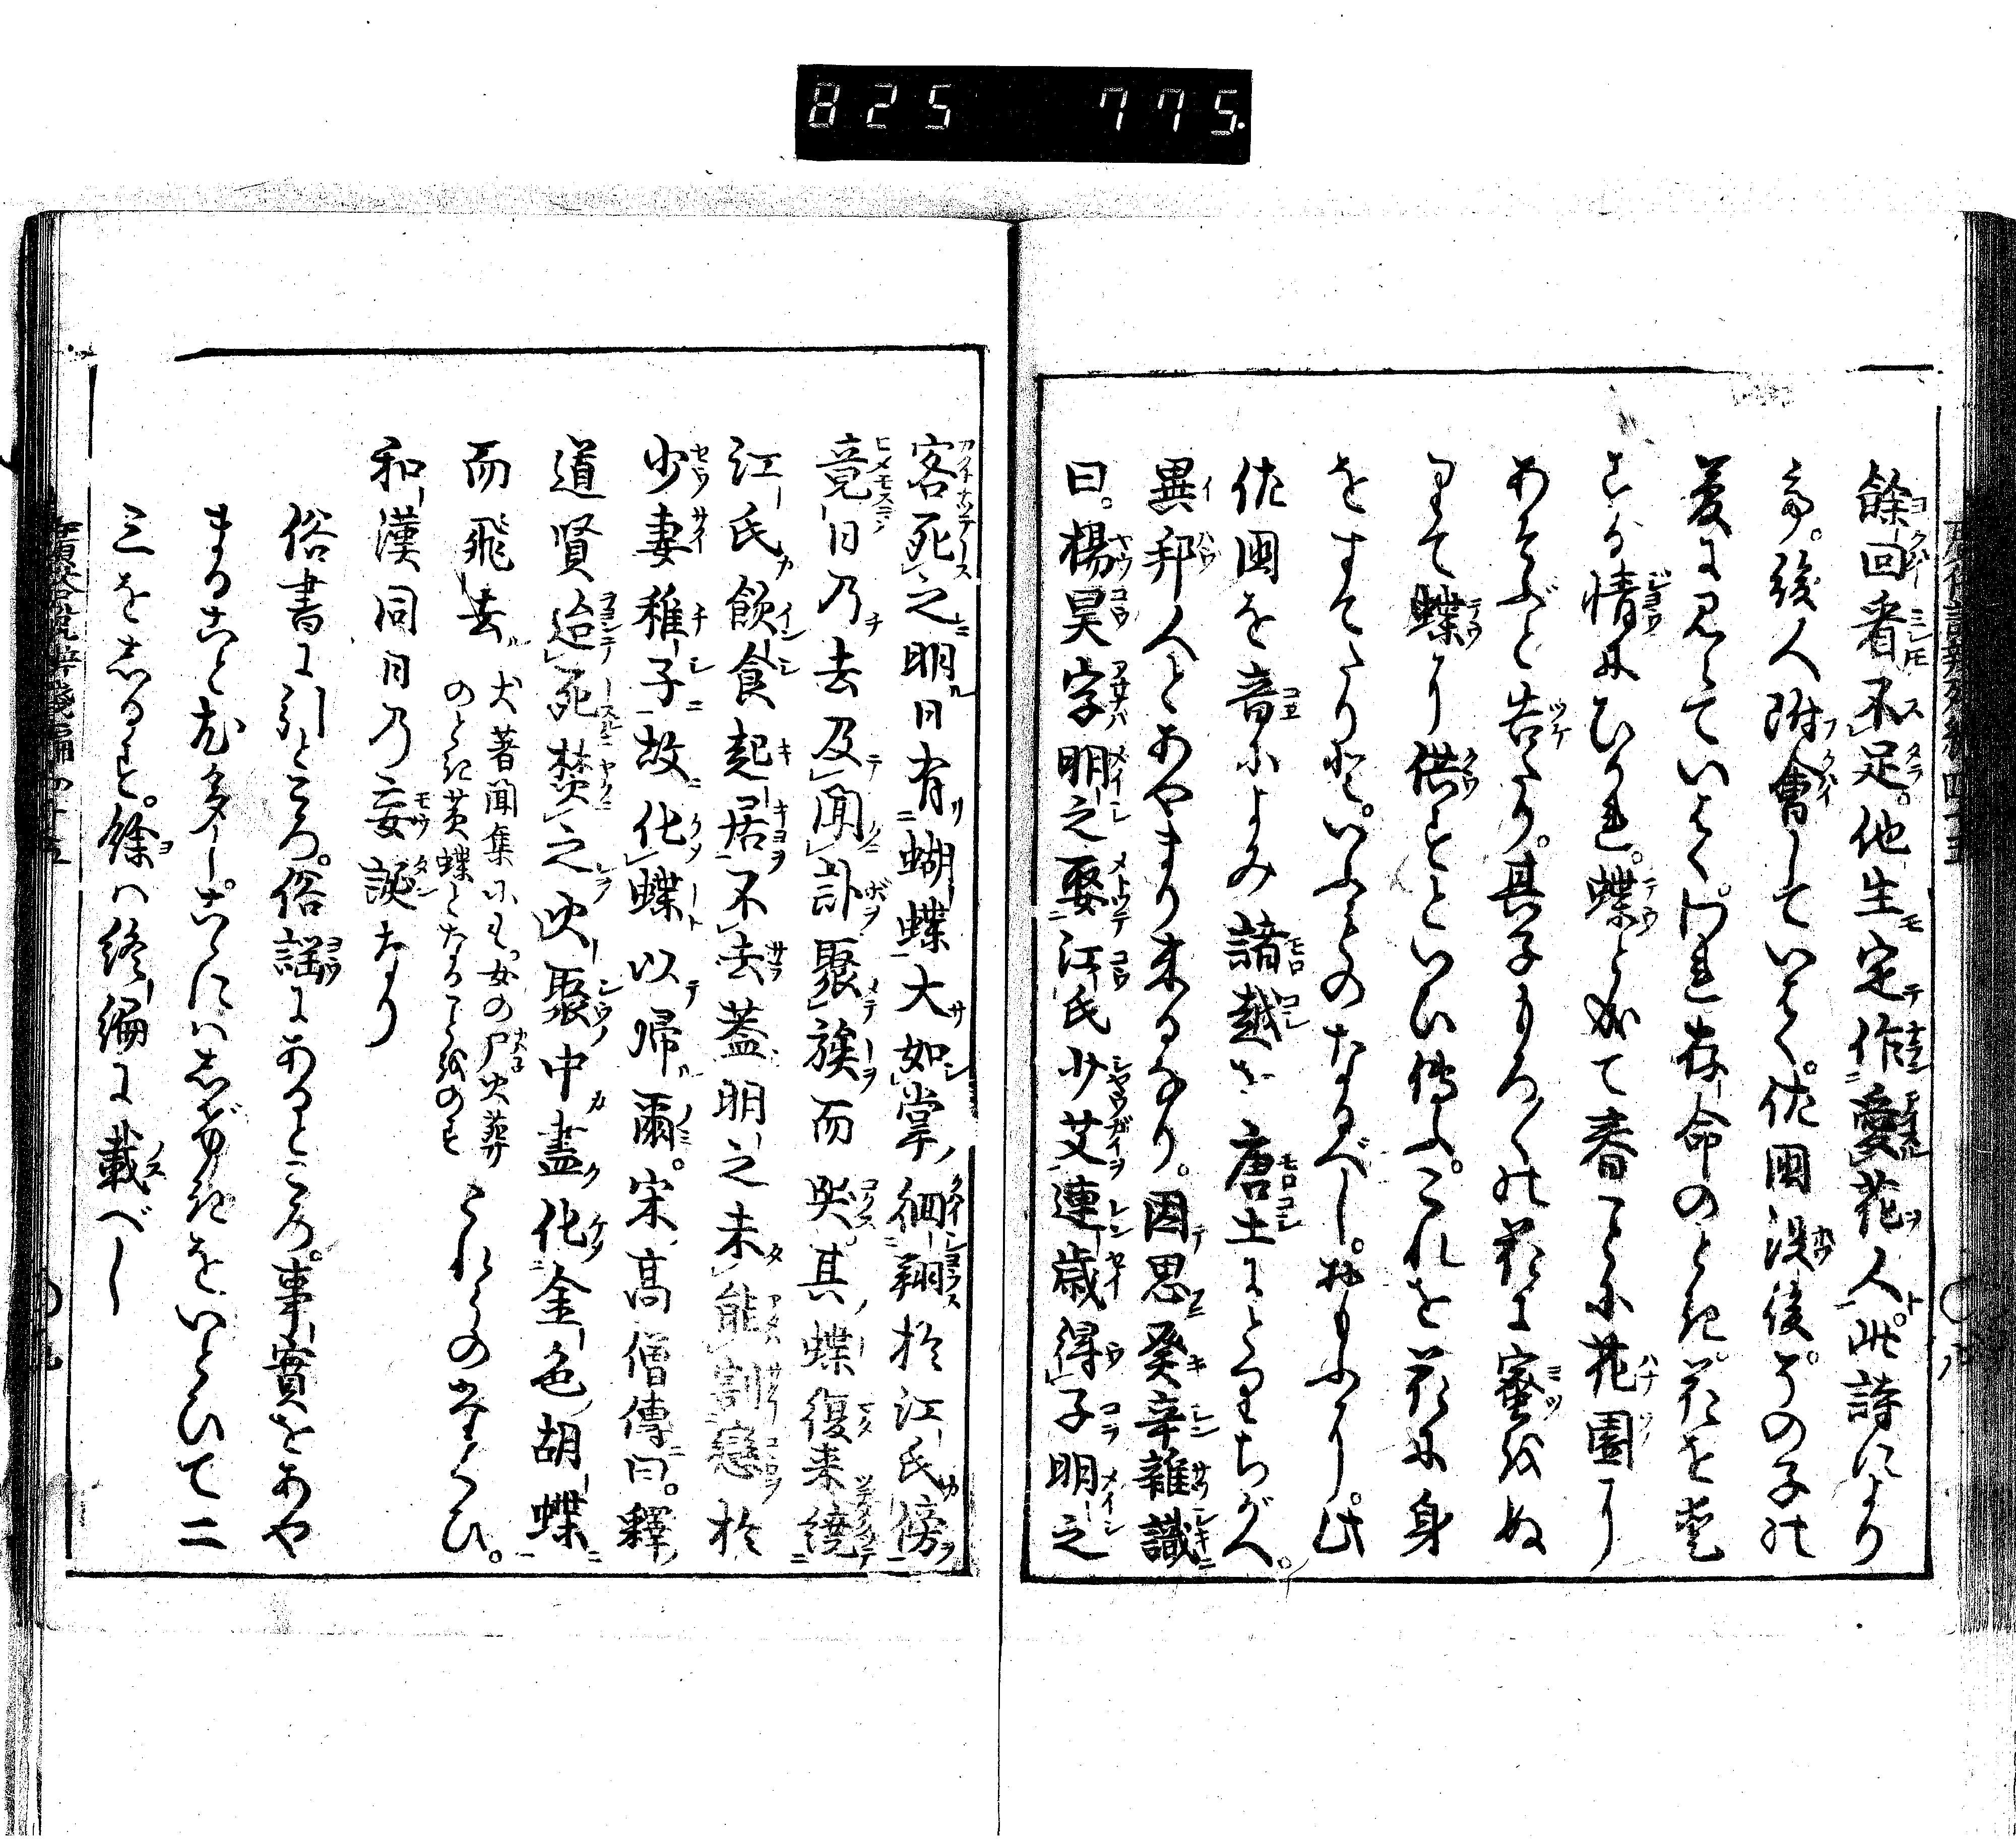 825 775.
餘回看不足。他生定作愛花人。此詩により
て。後人附會していはく。佐國没後。その子の
夢に見えていはく。われ存命のとき。花を愛
する情にひかれ。蝶と成て春ごとに花園に
あそぶと告たり。其子もろ〳〵の花に蜜をぬ
りて蝶に供すといひ傳ふ。これを花に身
をすてたりと。いふものなるべし。おもふに。此
佐國を音によみ諸越を唐土にとりちがへ。
異邦人とあやまり来るなり。因思癸辛雜識
曰。楊昊字明之娶江氏少艾連歳得子明之
客死之明日有蝴蝶大如掌徊翔於江氏傍
竟日乃去及聞訃聚族而哭其蝶復来繞
江氏飲食起居不去蓋明之未能割戀於
少妻稚子故化蝶以帰爾。宋高僧傳曰。釋
道賢迨死焚之次聚中盡化金色胡蝶
而飛去 犬著聞集にも。女の尸火葬
のとき黄蝶となることをのす これらのたぐひ。
和漢同日乃妄誕なり
俗書に引ところ。俗謡にあるところ。事實をあや
まること尤多し。こゝにはしげきをいとひて二
三をしるす。餘は終編に載べし